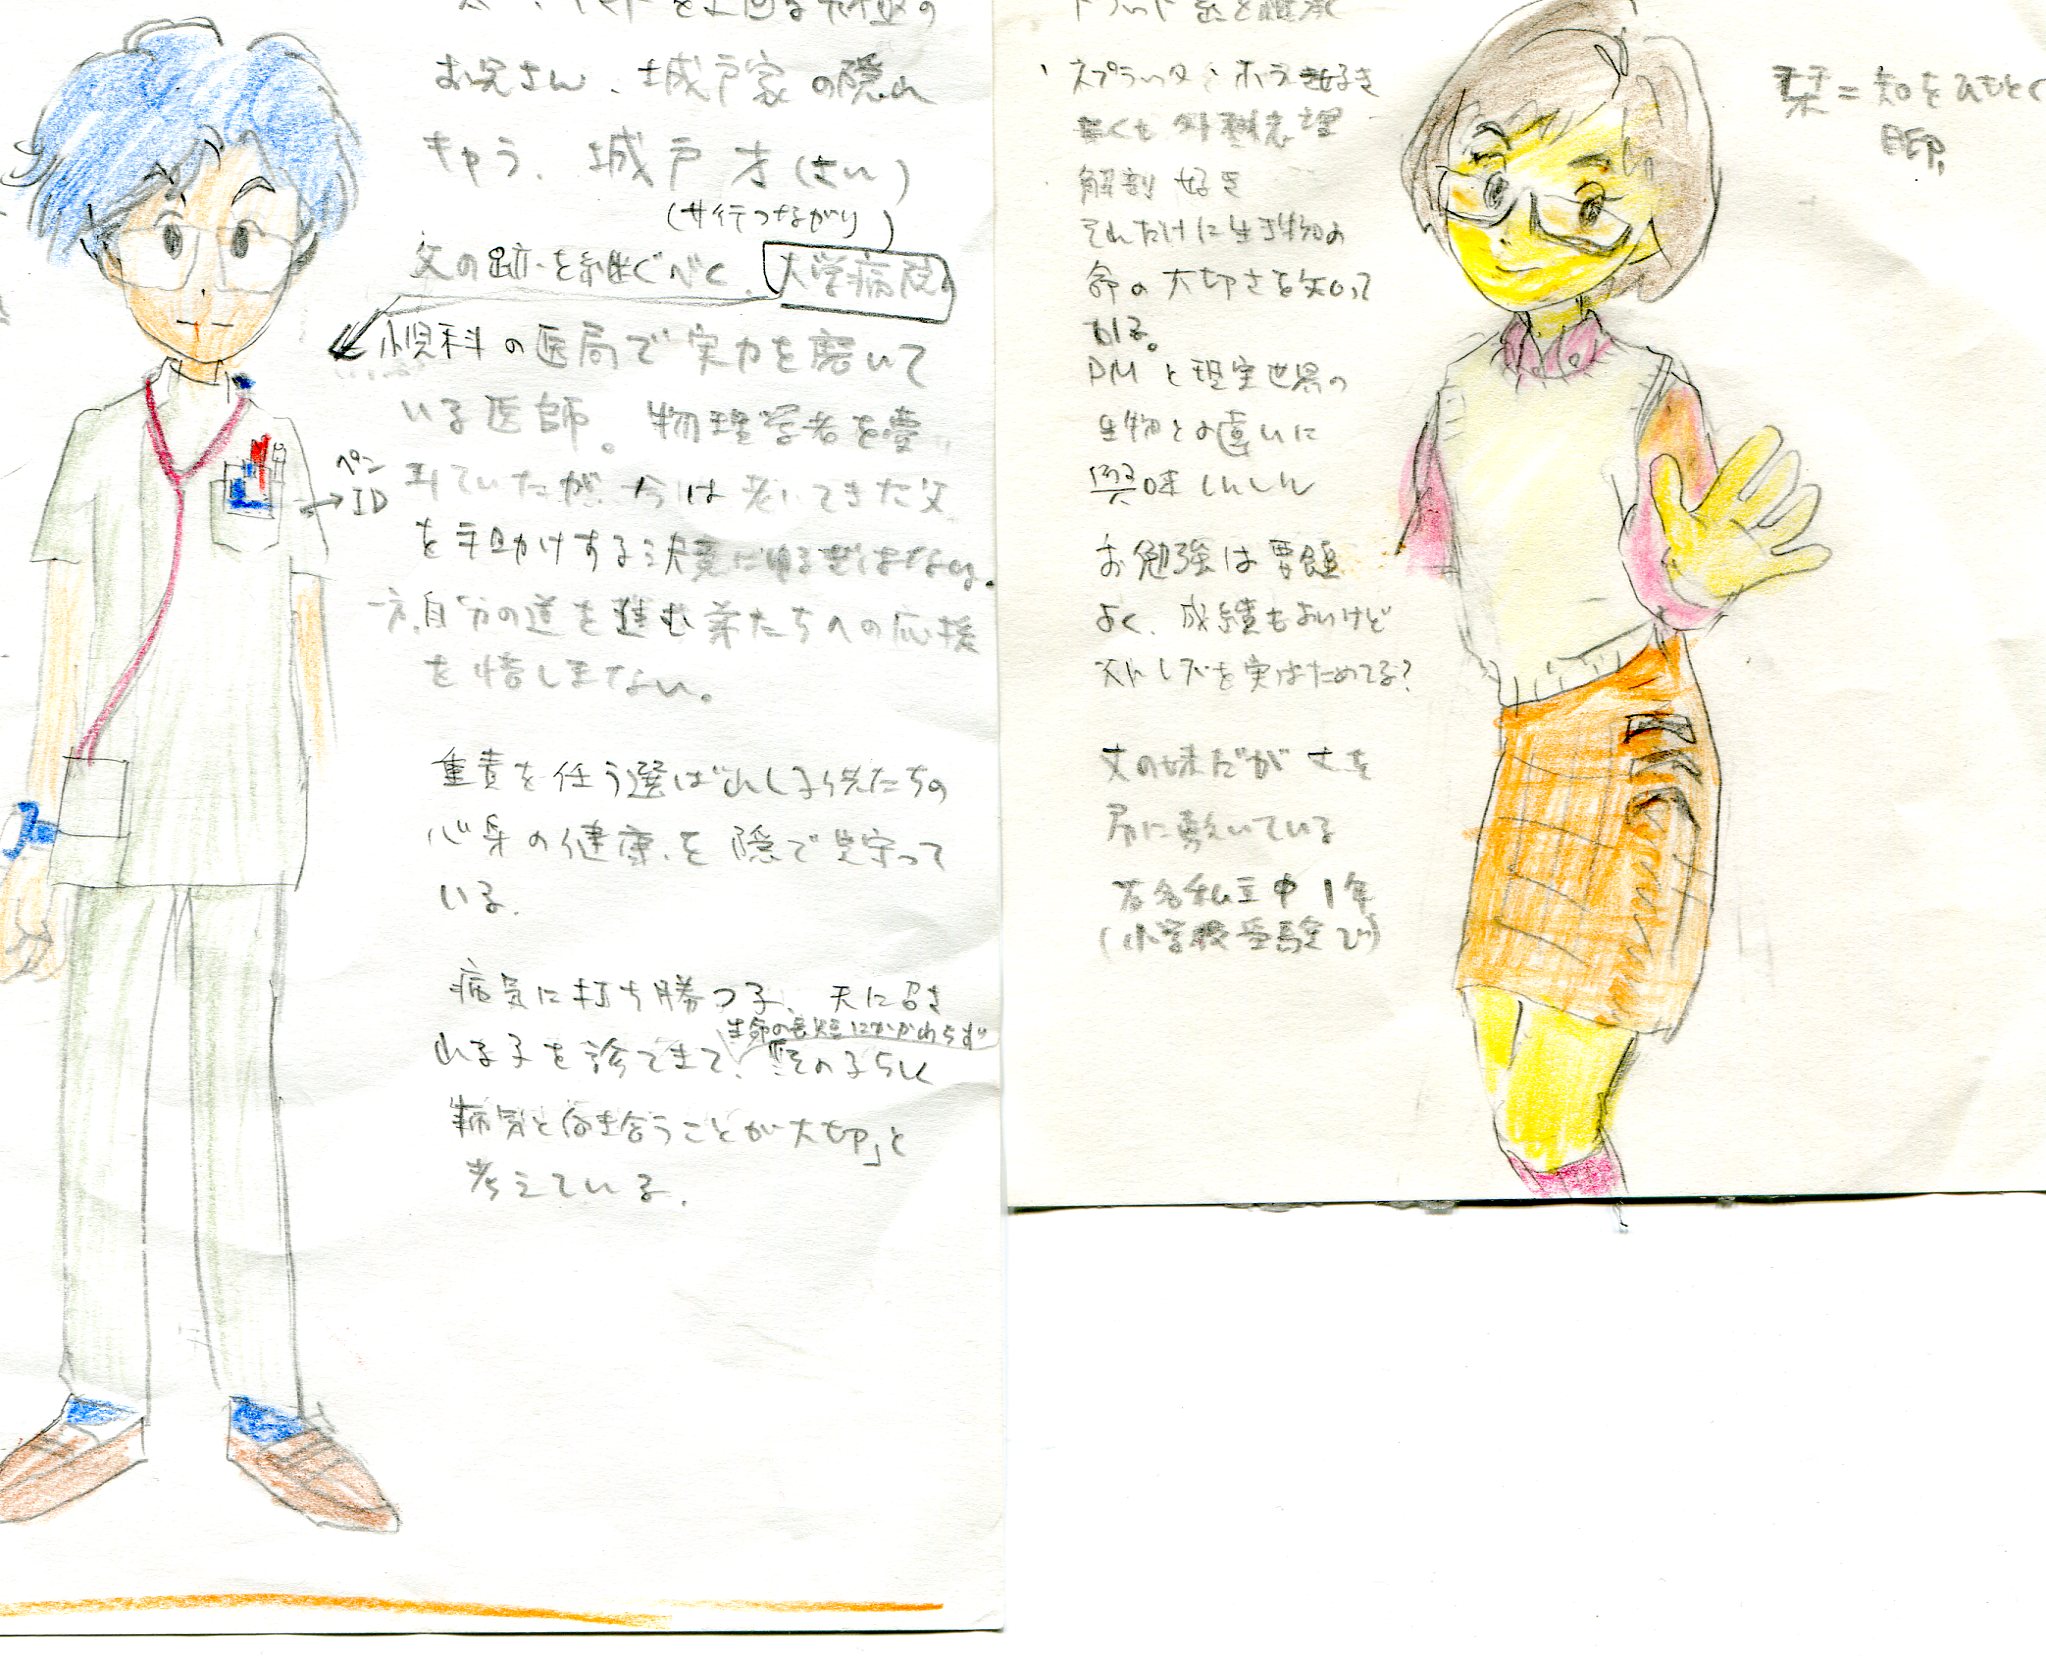 お兄さん、城戸家の隠れ
キャラ、城戸才(さい)
(サ行つながり)
父の跡を継ぐべく、大学病院の
小児科の医局で実力を磨いて
いる医師。物理学者を夢
見ていたが、今は老いてきた父
を手助けする決意にゆるぎはない。
一方、自分の道を進む弟たちへの応援
を惜しまない。
ペン
ID
重責を任う選ばれし子供たちの
心身の健康を隠で見守って
いる。
病気に打ち勝つ子、天に召さ
生命の長短にかかわらず
れる子を診てきて、「その子らしく
病気と向き合うことが大切」と
考えている。
スプラッタ・ホラー好き
外科志望
解剖好き
それだけに生き物の
命の大切さを知って
いる。
DMと現実世界の
生物との違いに
興味しんしん
お勉強は要領
よく、成績もよいけど
ストレスを実はためてる?
丈の妹だが丈を
尻に敷いている
有名私立中1年
(小学校受験で)
栞=知をひもとく